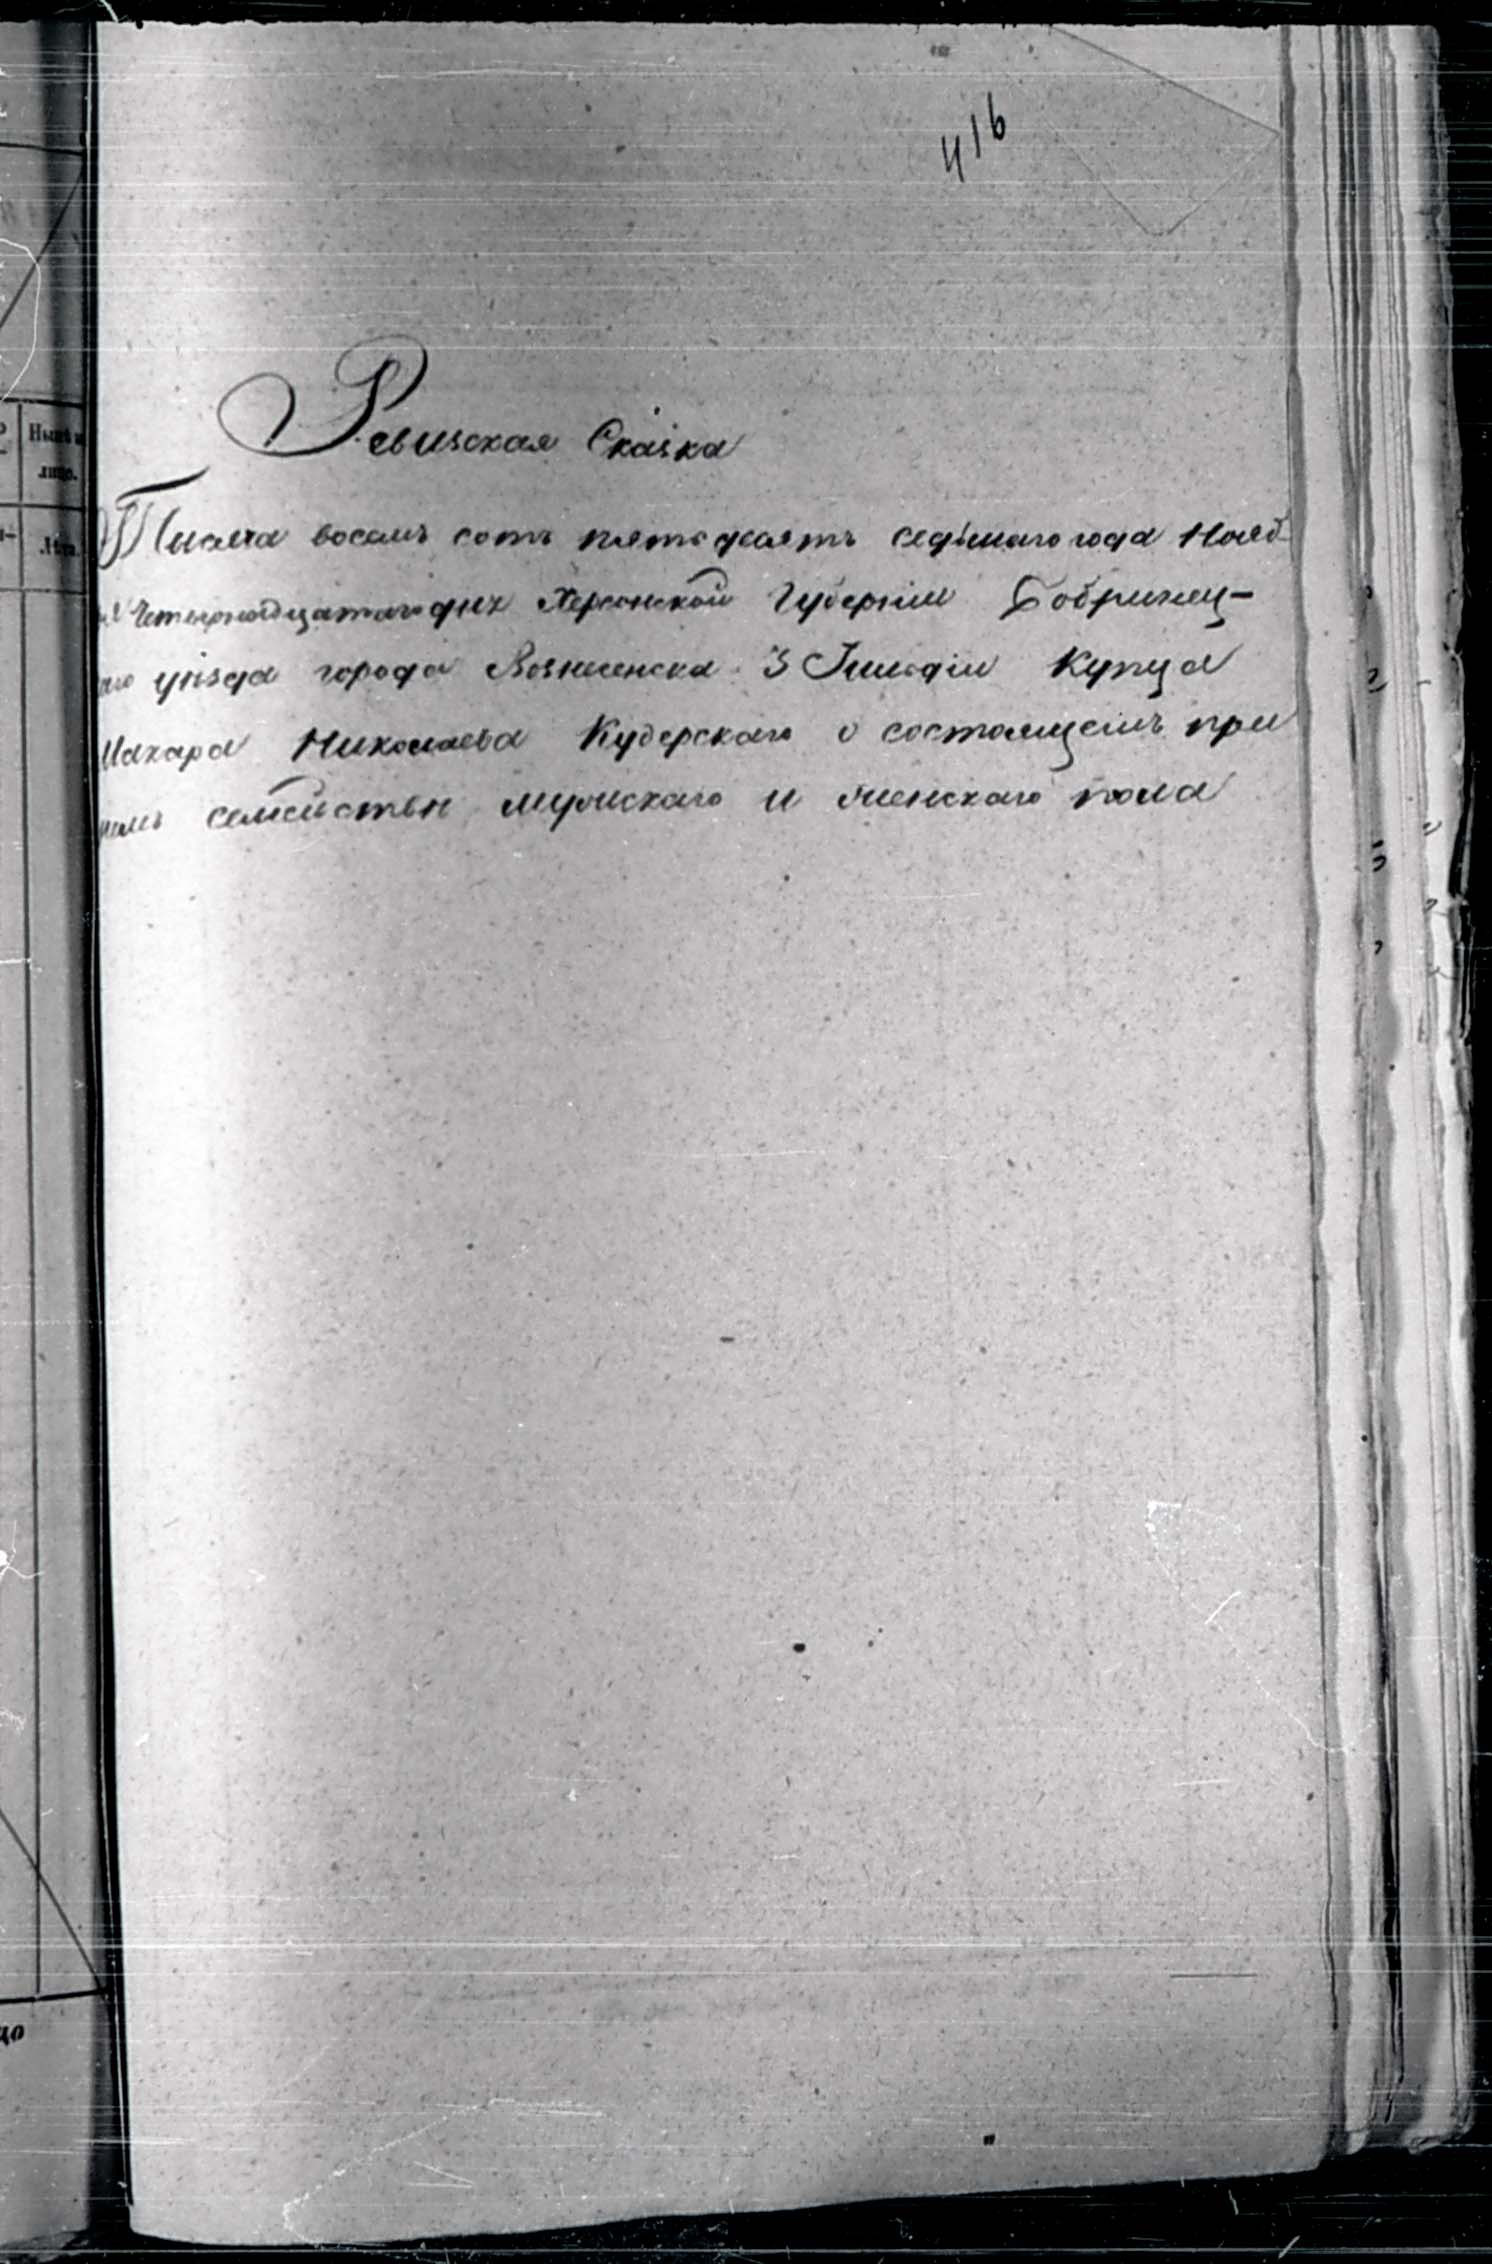 416
Ревизская Сказка
Тысяча восемь сотъ пятьдесятъ седьмаго года Нояб
ря четырнадцатаго дня Херсонской Губерніи Бобринец-
аго уѣзда города Вознесенска 3 Гильдіи Купца
Макара Николаева Кудерскаго о состоящемъ при
немъ семействѣ мужскаго и женскаго пола
Нынѣ
лицо.
Лѣта.